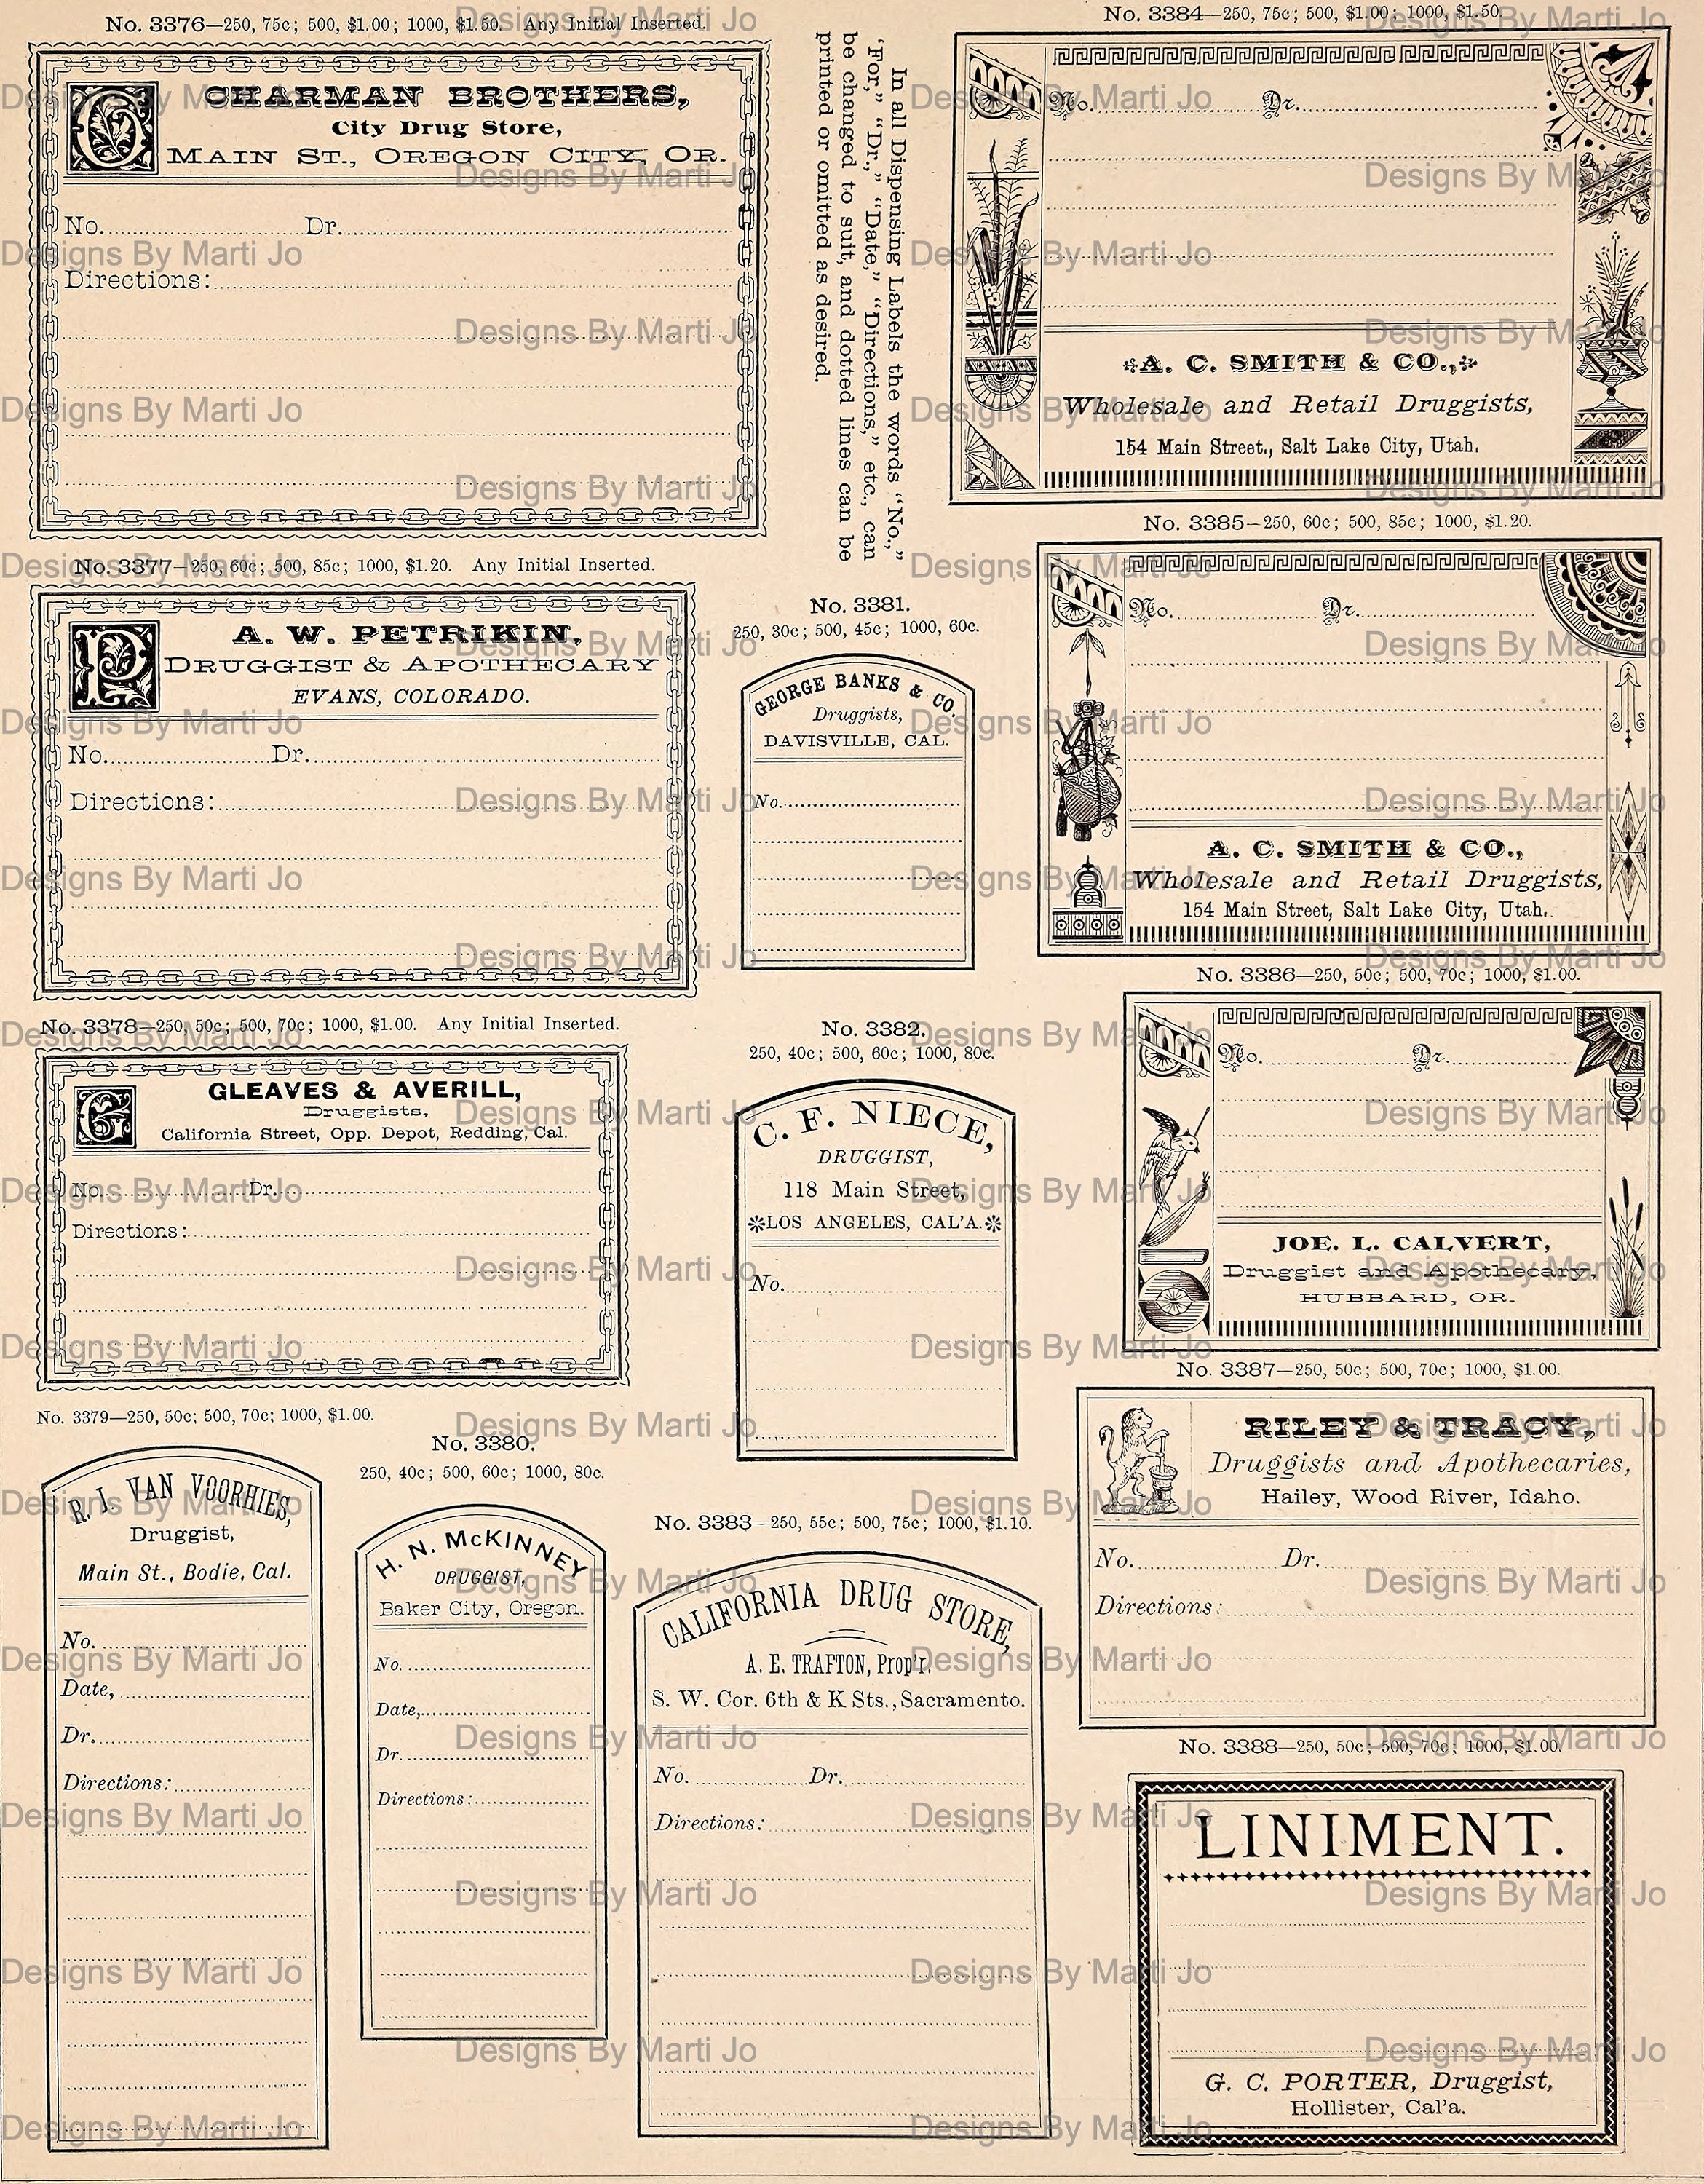 No. 3376—250, 75c; 500, $1.00; 1000, $1.50. Any Initial Inserted.
C
CHARMAN BROTHERS,
City Drug Store,
MAIN ST., OREGON CITY, OR.
No. Dr.
Directions:
In all Dispensing Labels the words "No.,"
"For," "Dr.," "Date," "Directions," etc., can
be changed to suit, and dotted lines can be
printed or omitted as desired.
No. 3384—250, 75c; 500, $1.00; 1000, $1.50.
No. Dr.
A. C. SMITH & CO.,
Wholesale and Retail Druggists,
154 Main Street., Salt Lake City, Utah.
No. 3377—250, 60c; 500, 85c; 1000, $1.20. Any Initial Inserted.
P
A. W. PETRIKIN,
DRUGGIST & APOTHECARY
EVANS, COLORADO.
No. Dr.
Directions:
No. 3381.
250, 30c; 500, 45c; 1000, 60c.
GEORGE BANKS & CO.
Druggists,
DAVISVILLE, CAL.
No.
No. 3385—250, 60c; 500, 85c; 1000, $1.20.
No. Dr.
A. C. SMITH & CO.,
Wholesale and Retail Druggists,
154 Main Street, Salt Lake City, Utah.
No. 3378—250, 50c; 500, 70c; 1000, $1.00. Any Initial Inserted.
G
GLEAVES & AVERILL,
Druggists,
California Street, Opp. Depot, Redding, Cal.
No. Dr.
Directions:
No. 3382.
250, 40c; 500, 60c; 1000, 80c.
C. F. NIECE,
DRUGGIST,
118 Main Street,
LOS ANGELES, CAL'A.
No.
No. 3386—250, 50c; 500, 70c; 1000, $1.00.
No. Dr.
JOE. L. CALVERT,
Druggist and Apothecary,
HUBBARD, OR.
No. 3379—250, 50c; 500, 70c; 1000, $1.00.
R. J. VAN VOORHIES,
Druggist,
Main St., Bodie, Cal.
No.
Date,
Dr.
Directions:
No. 3380.
250, 40c; 500, 60c; 1000, 80c.
H. N. McKINNEY
DRUGGIST,
Baker City, Oregon.
No.
Date,
Dr.
Directions:
No. 3383—250, 55c; 500, 75c; 1000, $1.10.
CALIFORNIA DRUG STORE,
A. E. TRAFTON, Prop'r.
S. W. Cor. 6th & K Sts., Sacramento.
No. Dr.
Directions:
No. 3387—250, 50c; 500, 70c; 1000, $1.00.
RILEY & TRACY,
Druggists and Apothecaries,
Hailey, Wood River, Idaho.
No. Dr.
Directions:
No. 3388—250, 50c; 500, 70c; 1000, $1.00.
LINIMENT.
G. C. PORTER, Druggist,
Hollister, Cal'a.
Designs By Marti Jo